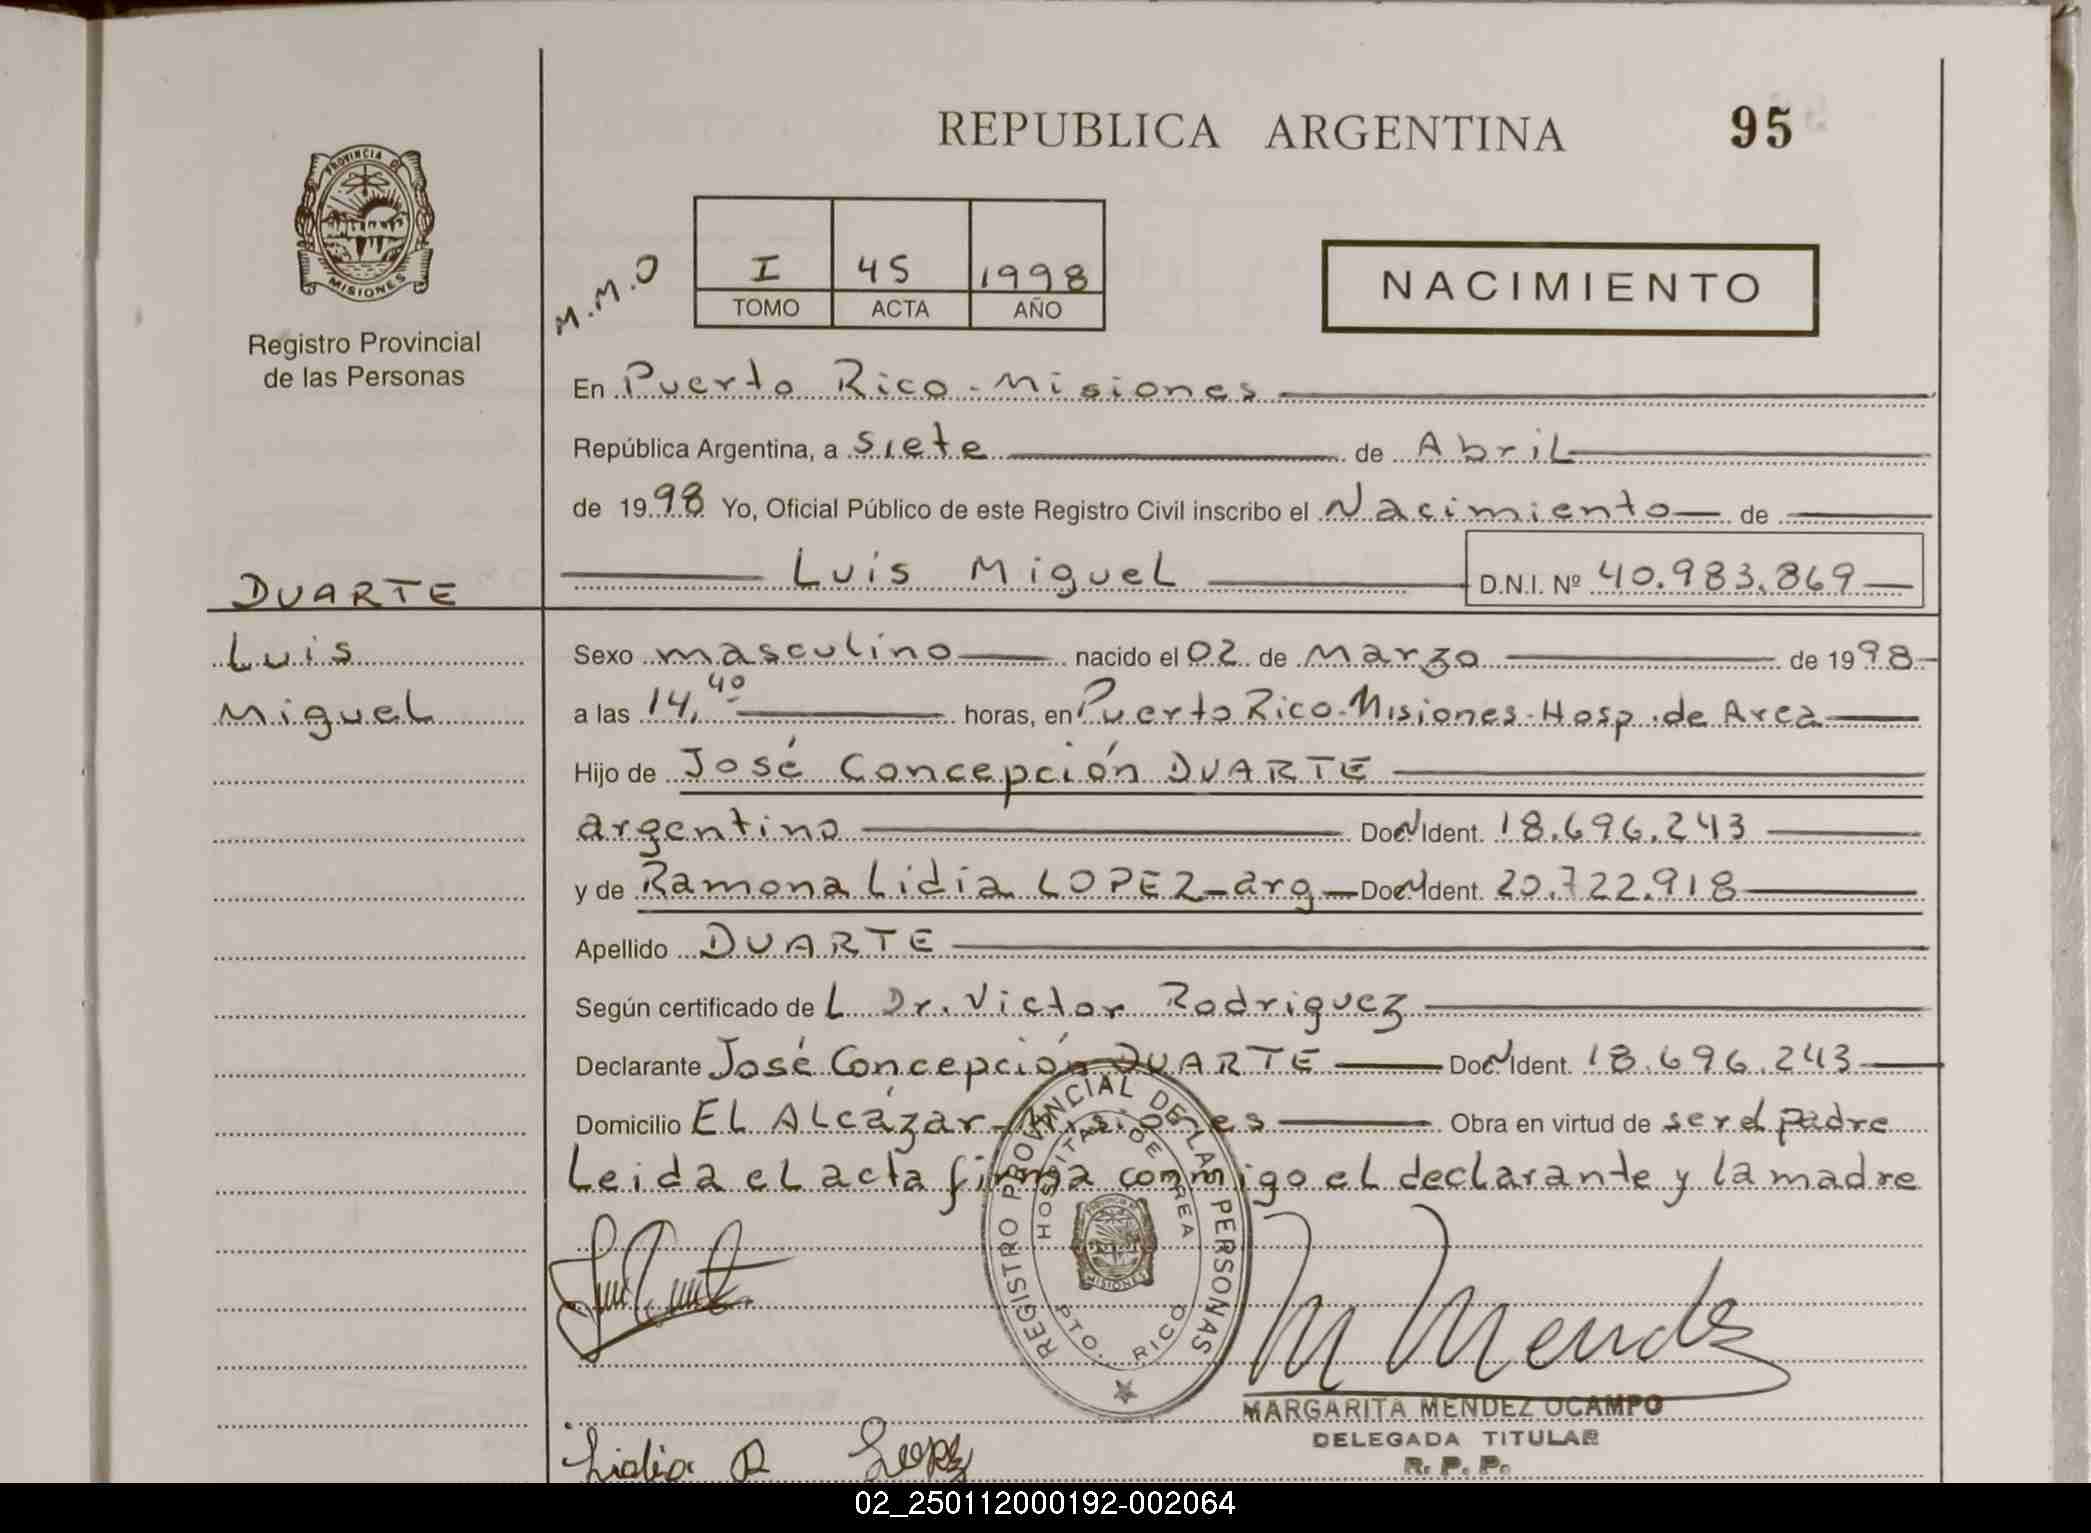 REPUBLICA ARGENTINA 95
PROVINCIA DE
MISIONES
Registro Provincial
de las Personas
M.M.O
I 45 1998
TOMO ACTA AÑO
NACIMIENTO
En Puerto Rico - Misiones
República Argentina, a siete de Abril
de 1998 Yo, Oficial Público de este Registro Civil inscribo el Nacimiento de
Luis Miguel D.N.I. Nº 40.983.869
DUARTE
Luis
Miguel
Sexo masculino nacido el 02 de Marzo de 1998
a las 14,40 horas, en Puerto Rico-Misiones-Hosp.de Area
Hijo de José Concepción DUARTE
argentino Doc N Ident. 18.696.243
y de Ramona Lidia LOPEZ-arg- Doc N Ident. 20.722.918
Apellido DUARTE
Según certificado de L Dr. Victor Rodriguez
Declarante José Concepción DUARTE Doc N Ident. 18.696.243
Domicilio EL ALcázar-Misiones Obra en virtud de ser el padre
Leida el acta firma conmigo el declarante y la madre
REGISTRO PROVINCIAL DE LAS PERSONAS
HOSPITAL DE AREA
MISIONES
PTO. RICO
M Mendez
MARGARITA MENDEZ OCAMPO
DELEGADA TITULAR
R. P. P.
Lidia R Lopez
02_250112000192-002064